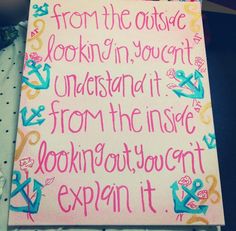 from the outside
looking in, you can't
understand it.
from the inside
looking out, you can't
explain it.